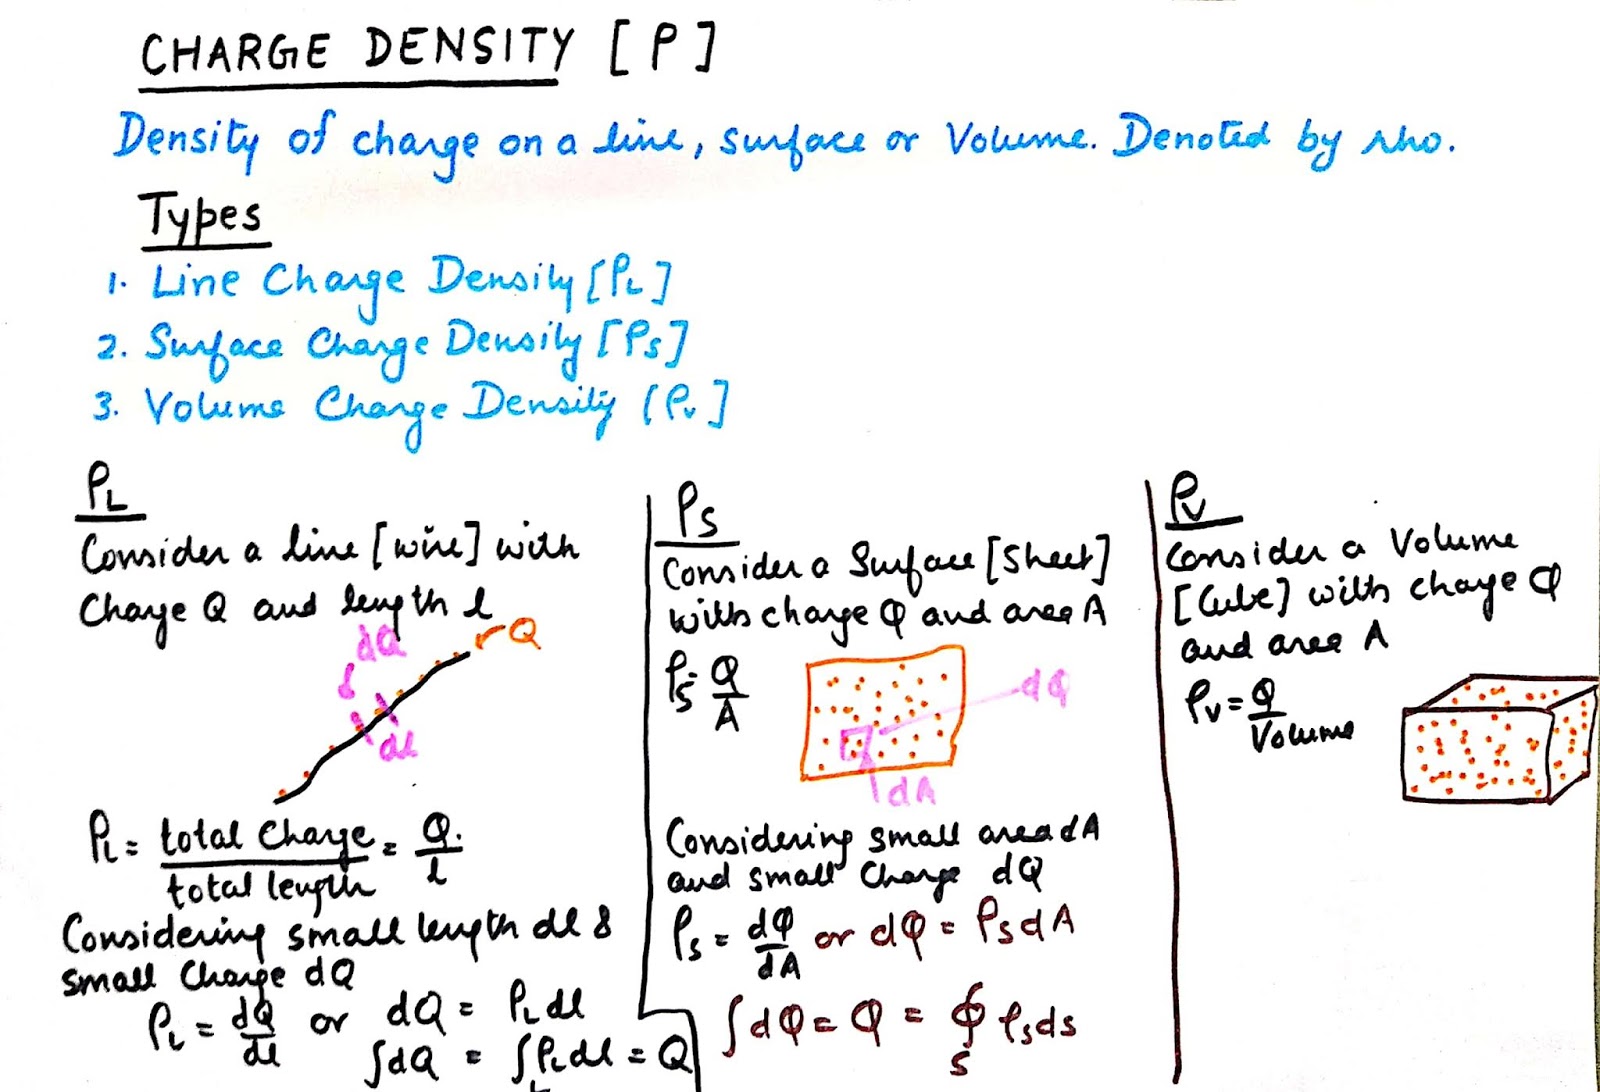 CHARGE DENSITY [ρ]
Density of charge on a line, surface or Volume. Denoted by rho.
Types
1. Line Charge Density [ρL]
2. Surface Charge Density [ρS]
3. Volume Charge Density [ρv]
ρL
Consider a line [wire] with
Charge Q and length l
Q
dQ
dl
ρL = total Charge / total length = Q / l
Considering small length dl &
small Charge dQ
ρL = dQ/dl or dQ = ρL dl
∫dQ = ∫ρL dl = Q
ρS
Consider a Surface [Sheet]
with charge Q and area A
ρS = Q/A
dQ
dA
Considering small area dA
and small Charge dQ
ρS = dQ/dA or dQ = ρS dA
∫dQ = Q = ∮S ρS ds
ρV
Consider a Volume
[Cube] with charge Q
and area A
ρV = Q/Volume